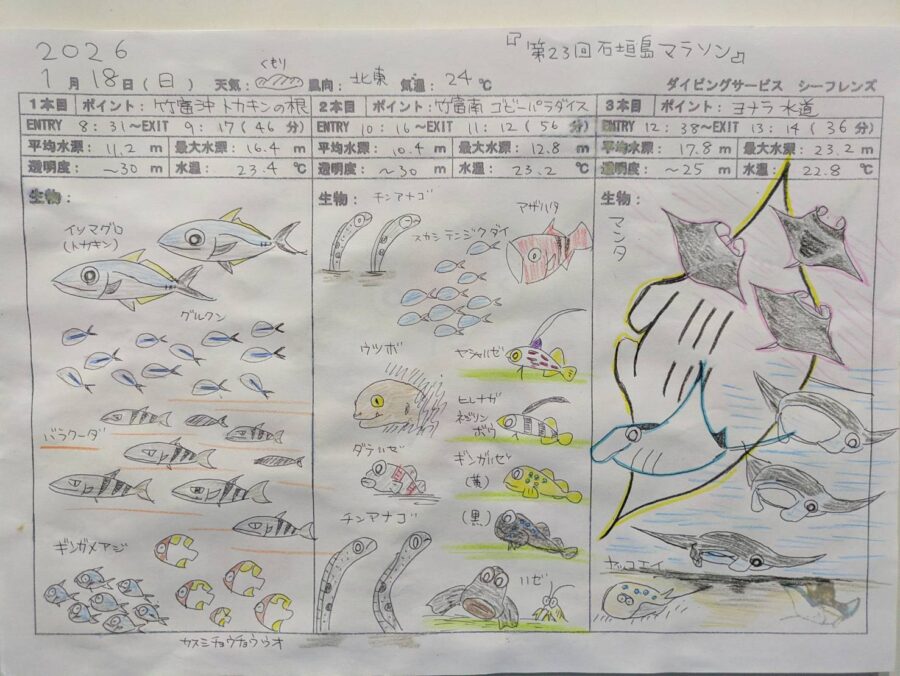 2026
『第23回石垣島マラソン』
1月18日(日) 天気:くもり 風向:北東 気温:24℃
ダイビングサービス シーフレンズ
1本目 ポイント:竹富沖 トカキンの根
ENTRY 8:31～EXIT 9:17(46分)
平均水深:11.2m 最大水深:16.4m
透明度:～30m 水温:23.4℃
生物:
イソマグロ
(トカキン)
グルクン
バラクーダ
ギンガメアジ
カスミチョウチョウウオ
2本目 ポイント:竹富南 ゴビーパラダイス
ENTRY 10:16～EXIT 11:12(56分)
平均水深:10.4m 最大水深:12.8m
透明度:～30m 水温:23.2℃
生物:
チンアナゴ
アザハタ
スカシテンジクダイ
ウツボ
ヤシャハゼ
ヒレナガ
ネジリン
ボウ
ダテハゼ
ギンガハゼ
(黄)
チンアナゴ
(黒)
ハゼ
3本目 ポイント:ヨナラ水道
ENTRY 12:38～EXIT 13:14(36分)
平均水深:17.8m 最大水深:23.2m
透明度:～25m 水温:22.8℃
生物:
マンタ
ヤッコエイ